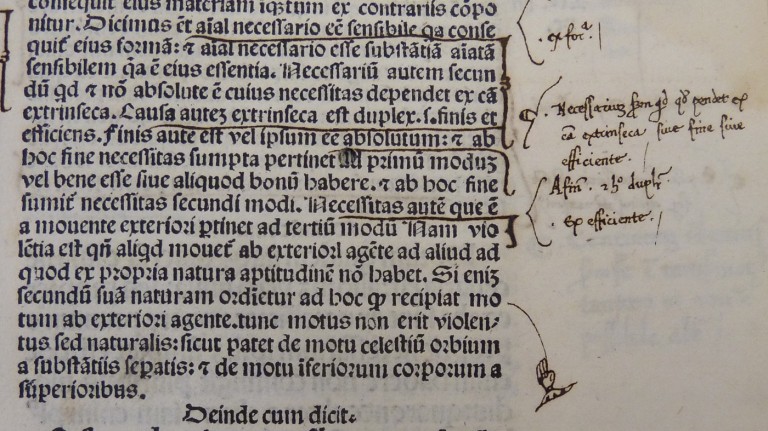 consequit eius materiam inq̃tum ex contrariis cõpo
nitur. Dicimus ẽt aĩal necessario eẽ sensibile qa conse
quit̃ eius formã: ⁊ aĩal necessario esse substãtiã aĩatã
sensibilem q̃a ẽ eius essentia. Necessariũ autem secun
dũ qd ⁊ nõ absolute ẽ cuius necessitas dependet ex cã
extrinseca. Causa autez extrinseca est duplex. s. finis et
efficiens. Finis autẽ est vel ipsum eẽ absolutum: ⁊ ab
hoc fine necessitas sumpta pertinet ad primũ moduz
vel bene esse siue aliquod bonũ habere. ⁊ ab hoc fine
sumit̃ necessitas secundi modi. Necessitas autẽ que ẽ
a mouente exteriori ꝑtinet ad tertiũ modũ Nam vio
lẽtia est qñ aliqd mouet̃ ab exteriori agẽte ad aliud ad
quod ex propria natura aptitudinẽ nõ habet. Si eniz
secundũ suã naturam ordĩetur ad hoc ꝙ recipiat mo
tum ab exteriori agente. tunc motus non erit violen⸗
tus sed naturalis: sicut patet de motu celestiũ orbium
a substãtiis sepatis: ⁊ de motu ĩferiorum corporum a
superioribus.
Deinde cum dicit.
. ex for.ᵃ
. Necessariuz qd pendet ex
cã extrinseca siue fine siue
efficiente.
A fin̄. ⁊ h° dupl.ʳ
. Ex efficiente.